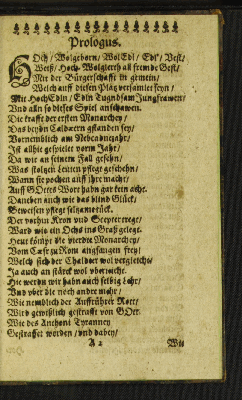 Prologus.
HOch / Wolgeborn / WolEdl / Edl / Vest /
Weiß / Hoch Wolgelerth all fremde Gest /
Mit der Bürgerschafft in gemein /
Welch auff disen Platz versamlet seyn /
Mit HochEdln / Edln Tugndsam Jungfrawen /
Vnd alln so dieses Spiel anschawen.
Die krafft der ersten Monarchey /
Das beydn Caldæern gstanden sey /
Vornemblich am Nebcadnezahr /
Ist allhie gespielet vorm Jahr /
Da wir an seinem Fall gesehn /
Was stoltzen Leuten pflege geschehn /
Wann sie pochen auff ihre macht /
Auff GOttes Wort habn gar kein acht.
Daneben auch wie das blind Glück /
Beweisen pflege selzame tück.
Der vorhin Kron vnd Scepter trege /
Ward wie ein Ochs ins Graß gelegt.
Heut kömpt die vierdte Monarchey /
Vom Cæsar zu Rom angfangen frey /
Welch sich der Chaldeer wol vergleicht /
Ja auch an stärck wol vberreicht.
Hie werdn wir habn auch selbig Lehr /
Vnd vber die noch andre mehr /
Wie nemblich der Auffrührer Rott /
Wird gewißlich gestrafft von GOtt.
Wie des Anthoni Tyranney
Gestraffet worden / vnd dabey /
A 2 Wie